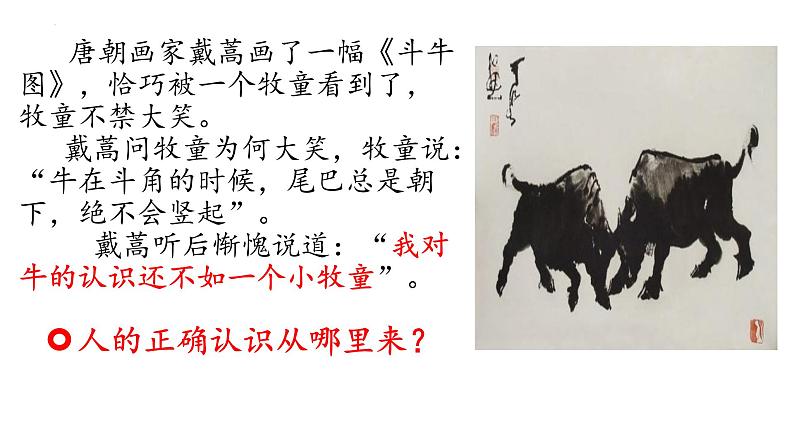 唐朝画家戴蒿画了一幅《斗牛
图》，恰巧被一个牧童看到了，
牧童不禁大笑。
戴蒿问牧童为何大笑，牧童说：
“牛在斗角的时候，尾巴总是朝
下，绝不会竖起”。
戴蒿听后惭愧说道：“我对
牛的认识还不如一个小牧童”。
人的正确认识从哪里来？